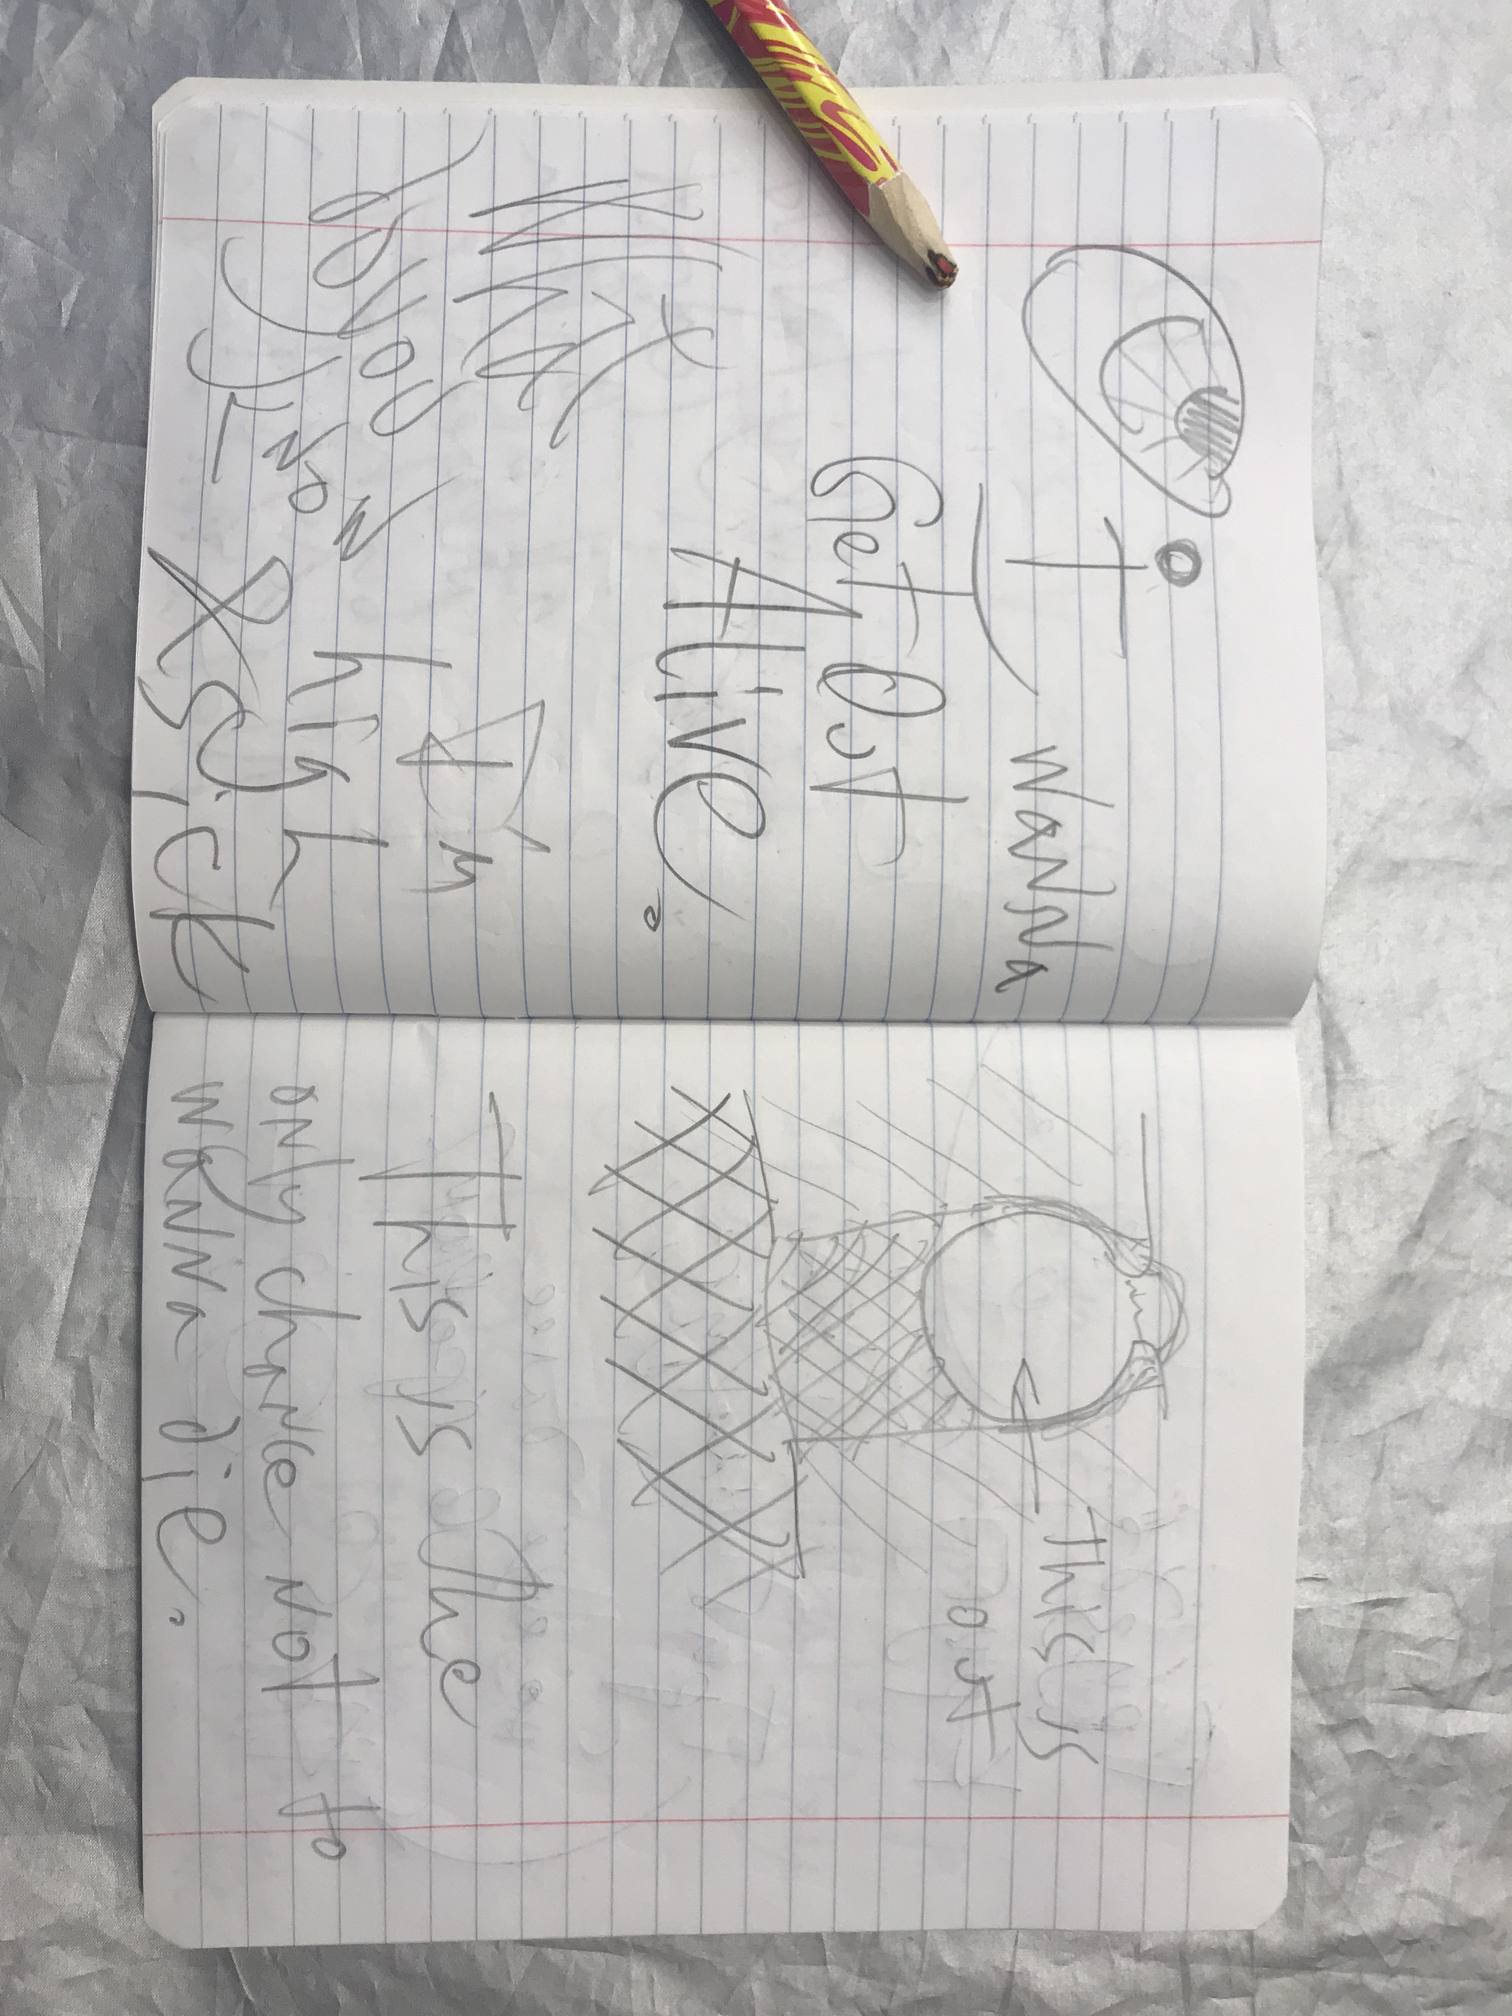 I wanna
Get Out
Alive.
What
do you
know
I'm
high
& sick
this is
out
This is the
only chance not to
wanna die.